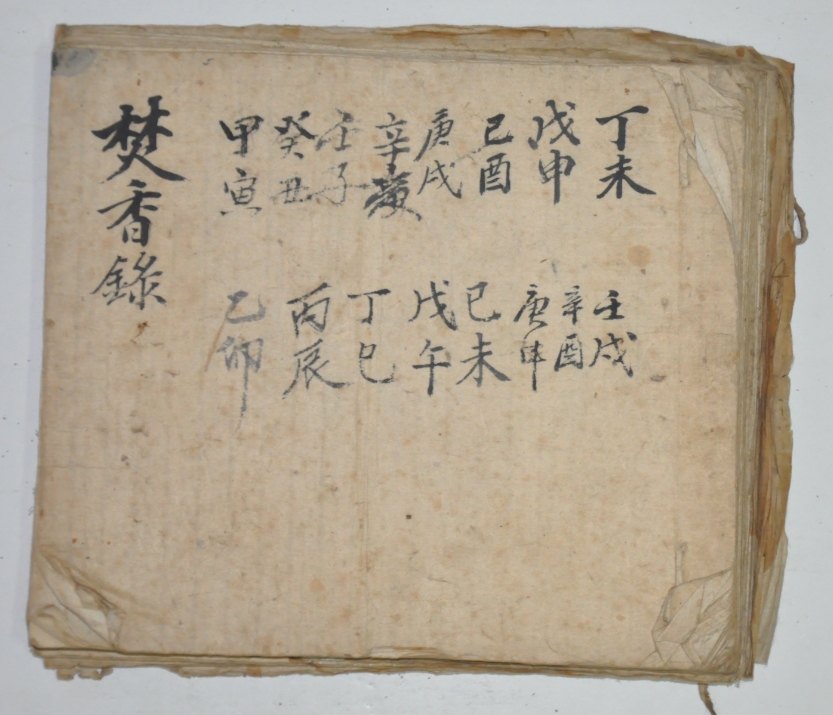 丁未
戊申
己酉
庚戌
辛
壬子
癸丑
甲寅
壬戌
辛酉
庚申
己未
戊午
丁巳
丙辰
乙卯
焚香錄